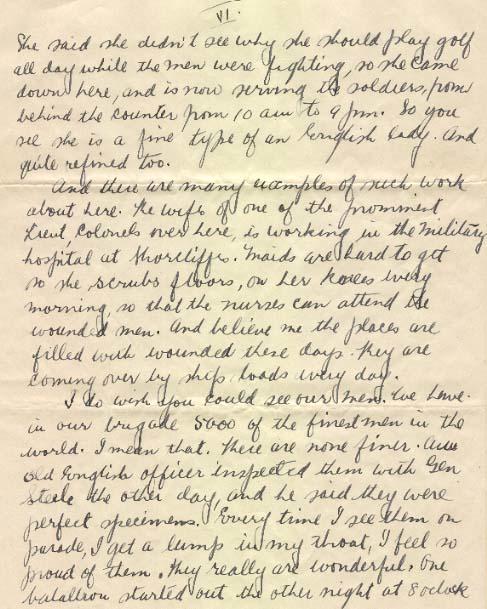 VI.
She said she didn't see why she should play golf
all day while the men were fighting, so she came
down here, and is now serving the soldiers, from
behind the counter from 10 am to 9 pm. So you
see she is a fine type of an English lady. And
quite refined too.
And there are many examples of such work
about here. The wife of one of the prominent
Lieut, Colonels over here, is working in the military
hospital at Shorcliffe. Maids are hard to get
so she scrubs floors, on her knees every
morning, so that the nurses can attend the
wounded men. And believe me the places are
filled with wounded these days. They are
coming over by ship loads every day.
I do wish you could see our men. We have
in our brigade 5000 of the finest men in the
world. I mean that. There are none finer. An
old English officer inspected them with Gen
Steele the other day, and he said they were
perfect specimens. Every time I see them on
parade, I get a lump in my throat, I feel so
proud of them. They really are wonderful. One
batallion started out the other night at 8 oclock